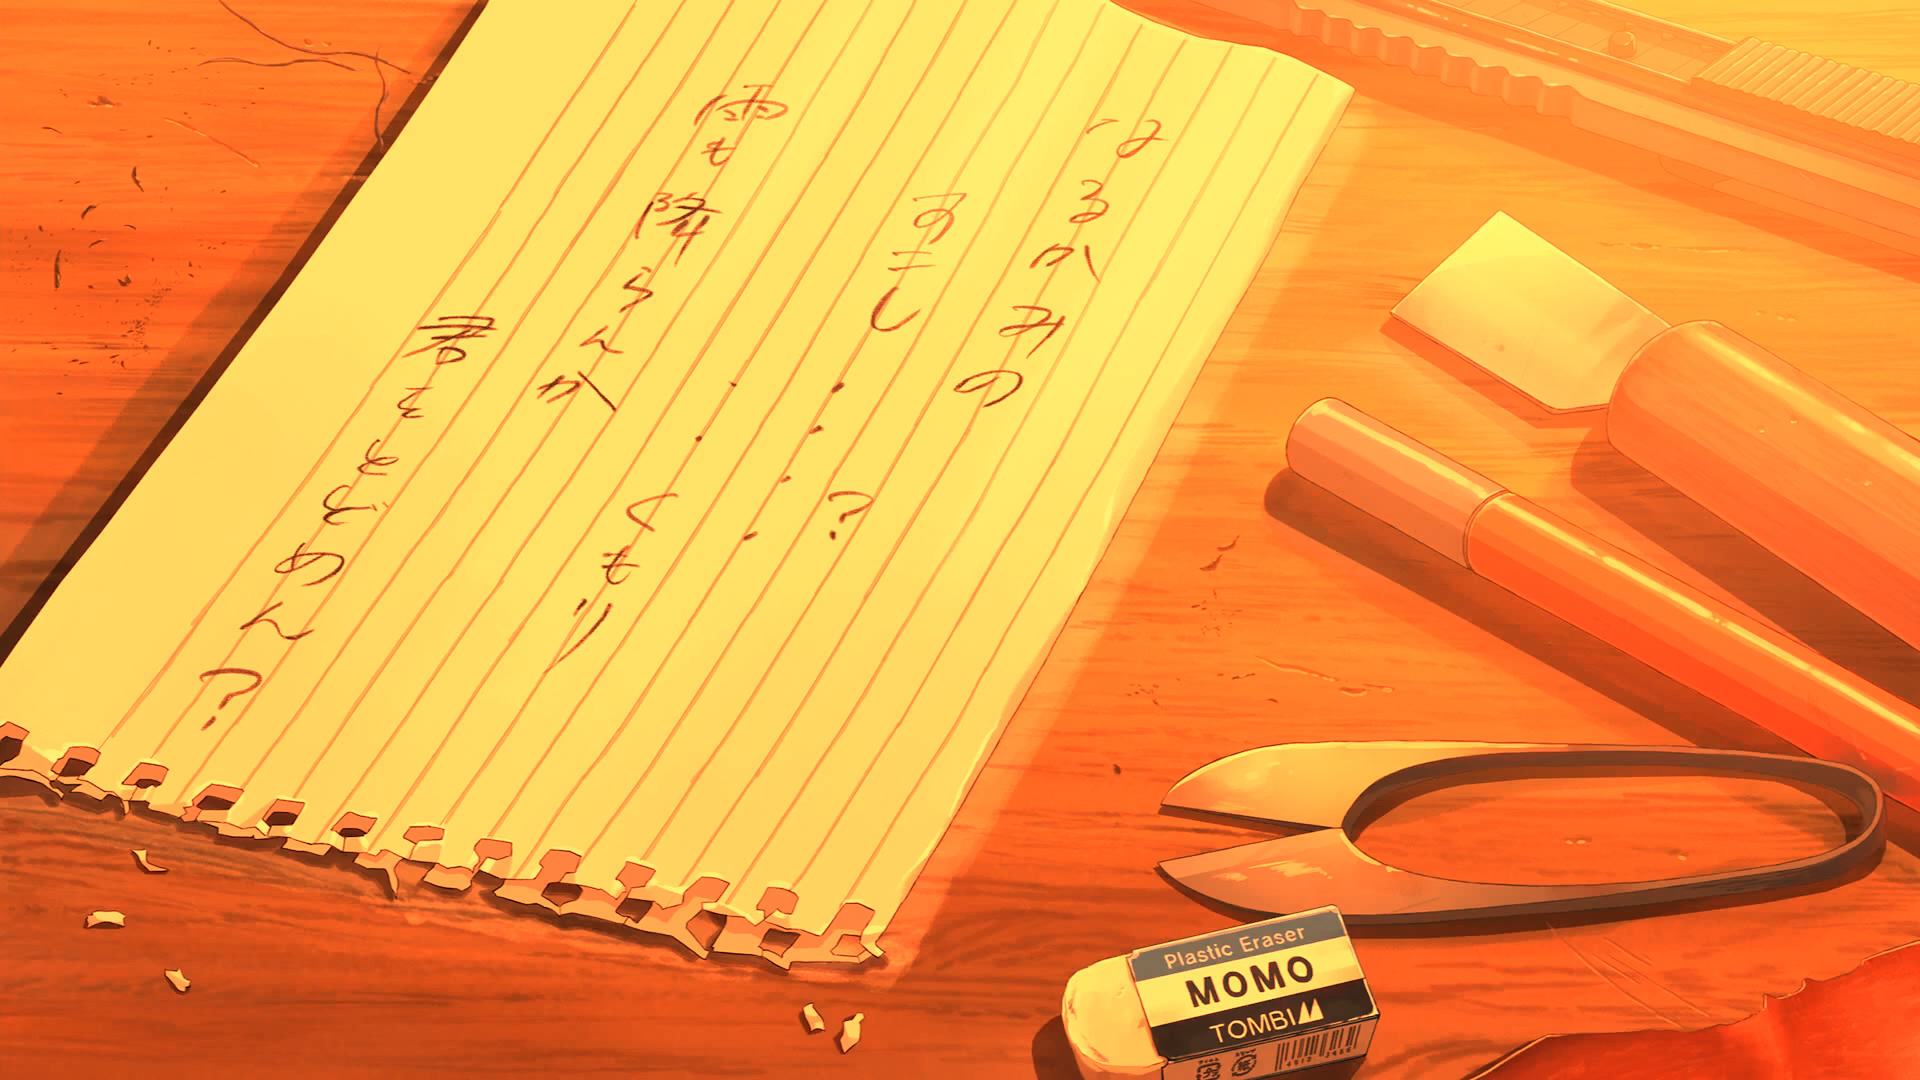 なるかみの
すこし・・・・？
・・くもり
雨も降らんか
君をとどめん？
Plastic Eraser
MOMO
TOMBIM